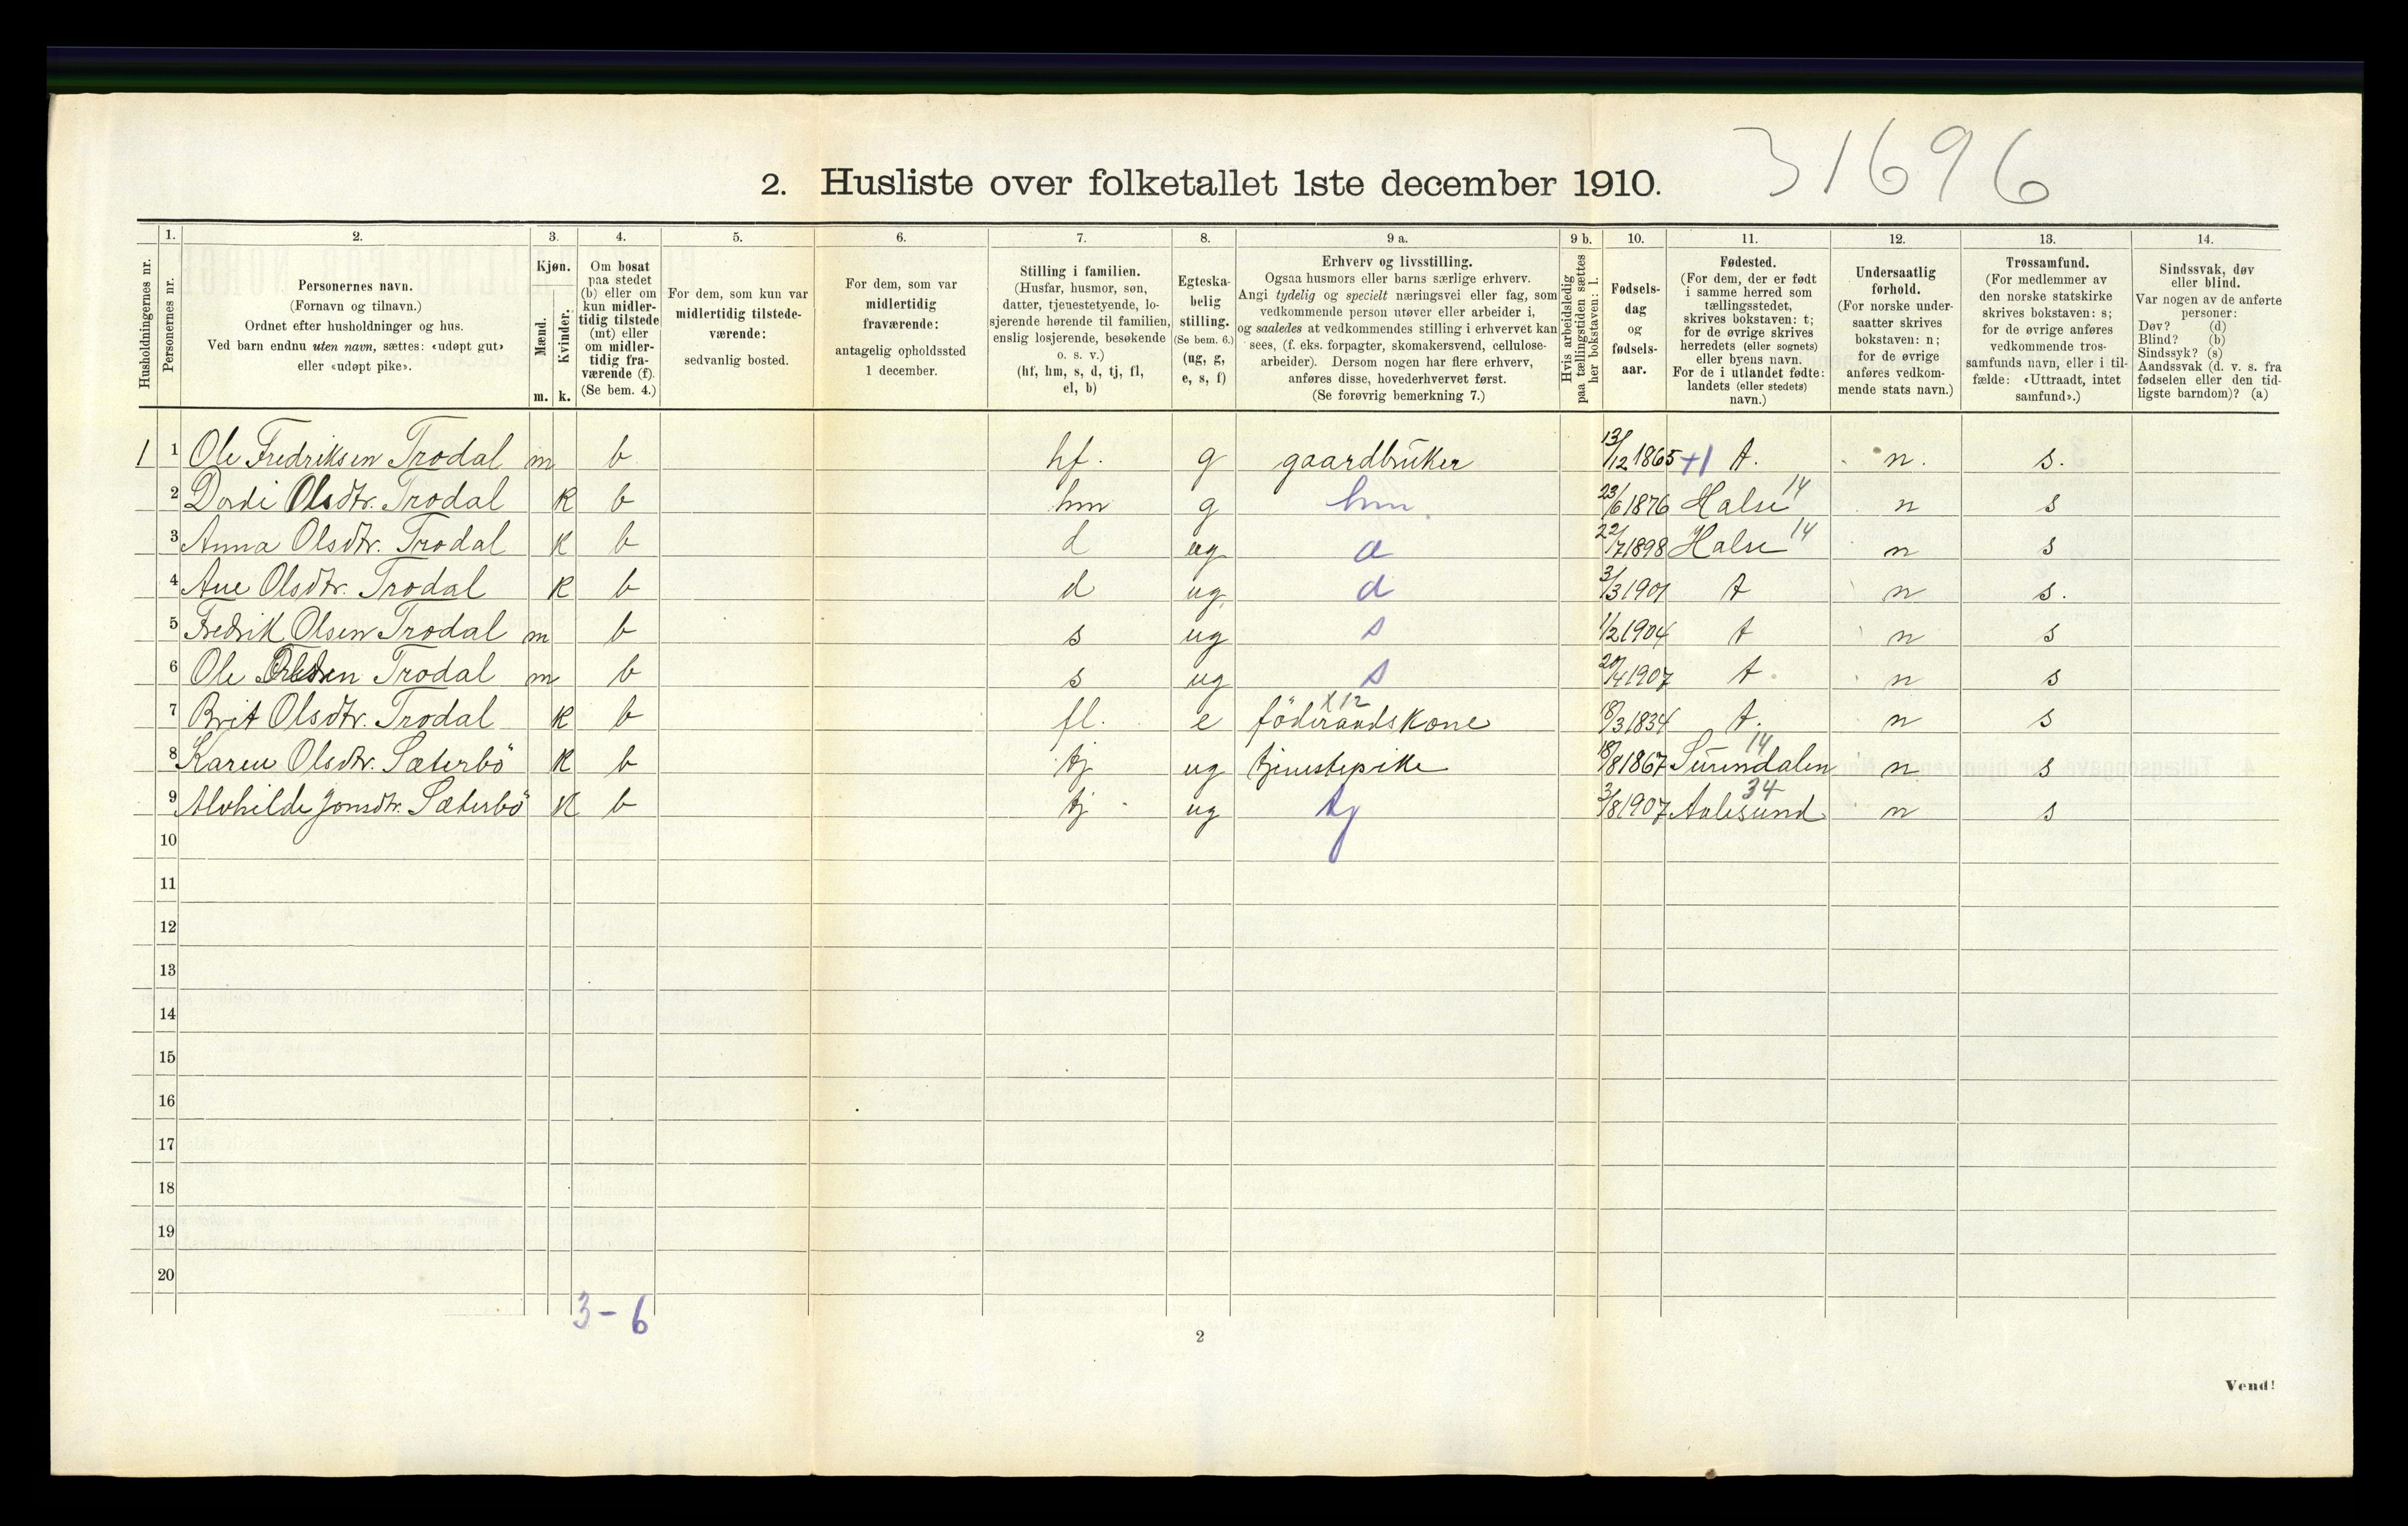 31696
2. Husliste over folketallet 1ste december 1910.
1. 2. 3. 4. 5. 6. 7. 8. 9 a. 9 b. 10. 11. 12. 13. 14.
Husholdningernes nr.
Personernes nr.
Personernes navn.
(Fornavn og tilnavn.)
Ordnet efter husholdninger og hus.
Ved barn endnu uten navn, sættes: «udøpt gut»
eller «udøpt pike».
Kjøn.
Mænd.
Kvinder.
m. k.
Om bosat
paa stedet
(b) eller om
kun midler-
tidig tilstede
(mt) eller
om midler-
tidig fra-
værende (f).
(Se bem. 4.)
For dem, som kun var
midlertidig tilstede-
værende:
sedvanlig bosted.
For dem, som var
midlertidig
fraværende:
antagelig opholdssted
1 december.
Stilling i familien.
(Husfar, husmor, søn,
datter, tjenestetyende, lo-
sjerende hørende til familien,
enslig losjerende, besøkende
o. s. v.)
(hf, hm, s, d, tj, fl,
el, b)
Egteska-
belig
stilling.
(Se bem. 6.)
(ug, g,
e, s, f)
Erhverv og livsstilling.
Ogsaa husmors eller barns særlige erhverv.
Angi tydelig og specielt næringsvei eller fag, som
vedkommende person utøver eller arbeider i,
og saaledes at vedkommendes stilling i erhvervet kan
sees, (f. eks. forpagter, skomakersvend, cellulose-
arbeider). Dersom nogen har flere erhverv,
anføres disse, hovederhvervet først.
(Se forøvrig bemerkning 7.)
Hvis arbeidsledig
paa tællingstiden sættes
her bokstaven: l.
Fødsels-
dag
og
fødsels-
aar.
Fødested.
(For dem, der er født
i samme herred som
tællingsstedet,
skrives bokstaven: t;
for de øvrige skrives
herredets (eller sognets)
eller byens navn.
For de i utlandet fødte:
landets (eller stedets)
navn.)
Undersaatlig
forhold.
(For norske under-
saatter skrives
bokstaven: n;
for de øvrige
anføres vedkom-
mende stats navn.)
Trossamfund.
(For medlemmer av
den norske statskirke
skrives bokstaven: s;
for de øvrige anføres
vedkommende tros-
samfunds navn, eller i til-
fælde: «Uttraadt, intet
samfund».)
Sindssvak, døv
eller blind.
Var nogen av de anførte
personer:
Døv? (d)
Blind? (b)
Sindssyk? (s)
Aandssvak (d. v. s. fra
fødselen eller den tid-
ligste barndom)? (a)
1 1 Ole Fredriksen Trodal m b hf. g gaardbruker 13/12 1865 +1 t. n. s.
2 Dordi Olsdtr. Trodal k b hm g hm. 23/6 1876 Halse 14 n s
3 Anna Olsdtr. Trodal k b d ug d 22/7 1898 Halse 14 n s
4 Ane Olsdtr. Trodal k b d ug d 3/3 1901 t n s.
5 Fredrik Olsen Trodal m b s ug s 1/2 1904 t n s
6 Ole Olsen Trodal m b s ug s 20/4 1907 t n s
7 Brit Olsdtr. Trodal k b fl. e föderaadskone x12 18/3 1834 t. n s
8 Karen Olsdtr. Sæterbö k b tj ug tjenestepike 18/8 1867 Surendalen 14 n s
9 Mohilde Jonsdtr. Sæterbö k b tj ug tj 3/8 1907 Aalesund 34 n s
10
11
12
13
14
15
16
17
18
19
20
3-6
2
Vend!